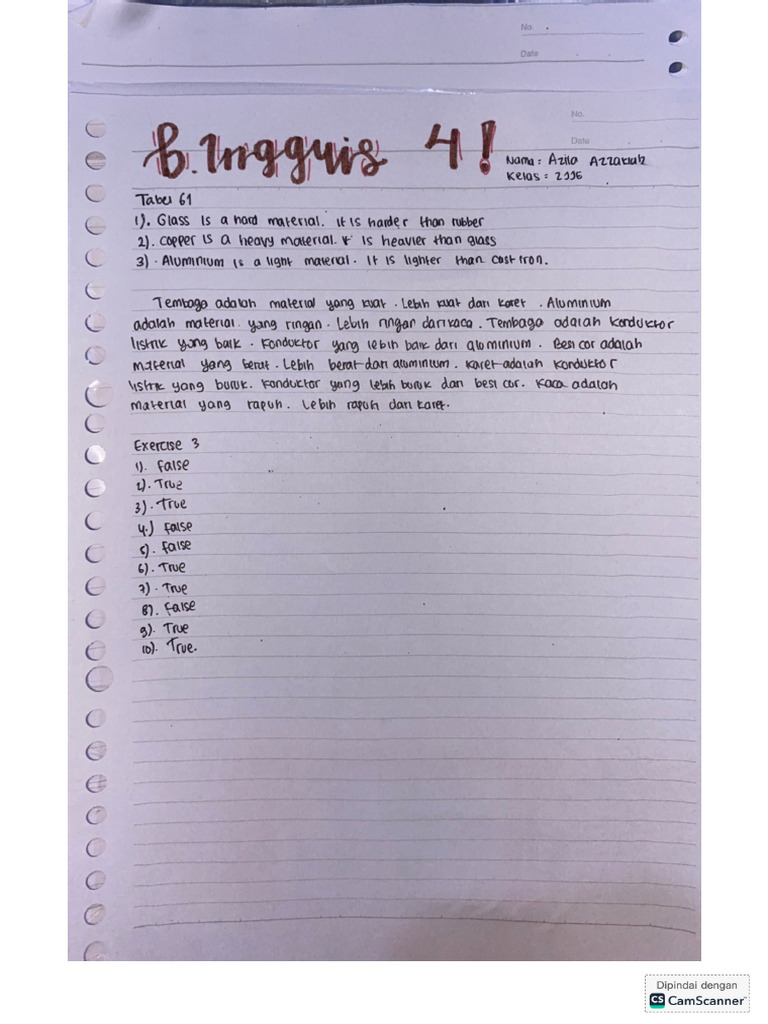 No.
Date
No.
Date
B. Inggris 4!
Nama : Azila Azzakiah
Kelas : 2IIE
Tabel 61
1). Glass is a hard material. it is harder than rubber
2). copper is a heavy material. it is heavier than glass
3). Aluminium is a light material. It is lighter than cast iron.
Tembaga adalah material yang kuat. Lebih kuat dari karet. Aluminium
adalah material yang ringan. Lebih ringan dari kaca. Tembaga adalah konduktor
listrik yang baik. Konduktor yang lebih baik dari aluminium. Besi cor adalah
material yang berat. Lebih berat dari aluminium. karet adalah konduktor
listrik yang buruk. konduktor yang lebih buruk dari besi cor. Kaca adalah
material yang rapuh. Lebih rapuh dari karet.
Exercise 3
1). False
2). True
3). True
4.) False
5). False
6). True
7). True
8). False
9). True
10). True.
Dipindai dengan
CS CamScanner